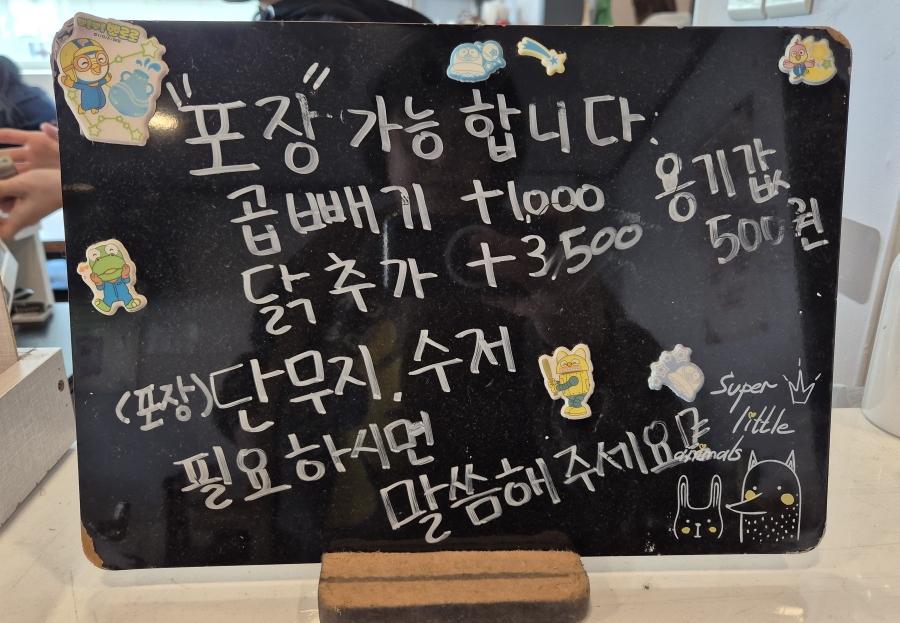 "포장" 가능합니다.
곱빼기 +1,000
닭추가 +3,500
용기값
500원
(포장)단무지. 수저
필요하시면
말씀해주세요
Super
little
animals